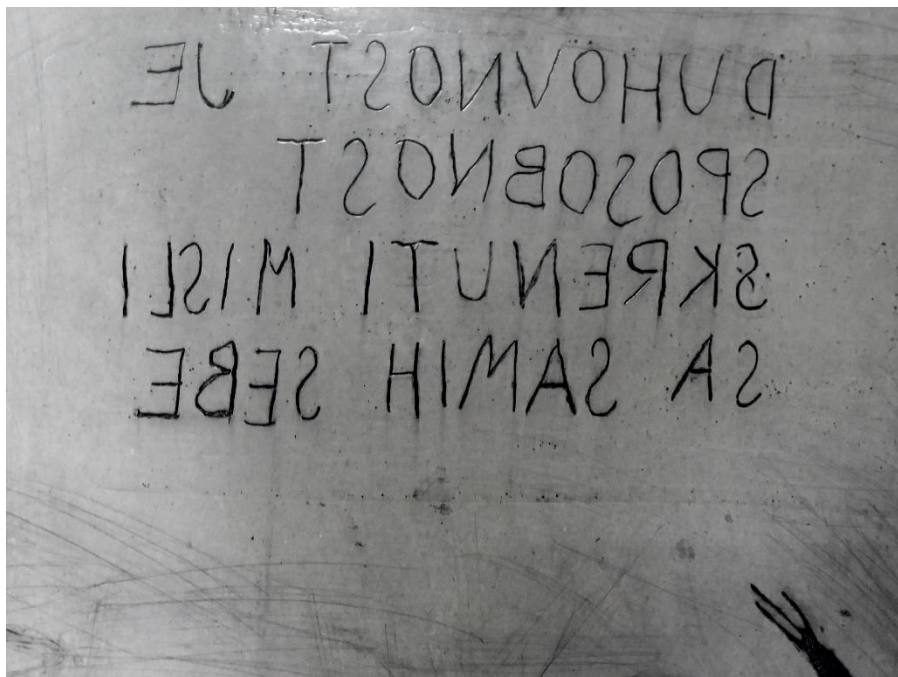 DUHOVNOST JE
SPOSOBNOST
SKRENUTI MISLI
SA SAMIH SEBE